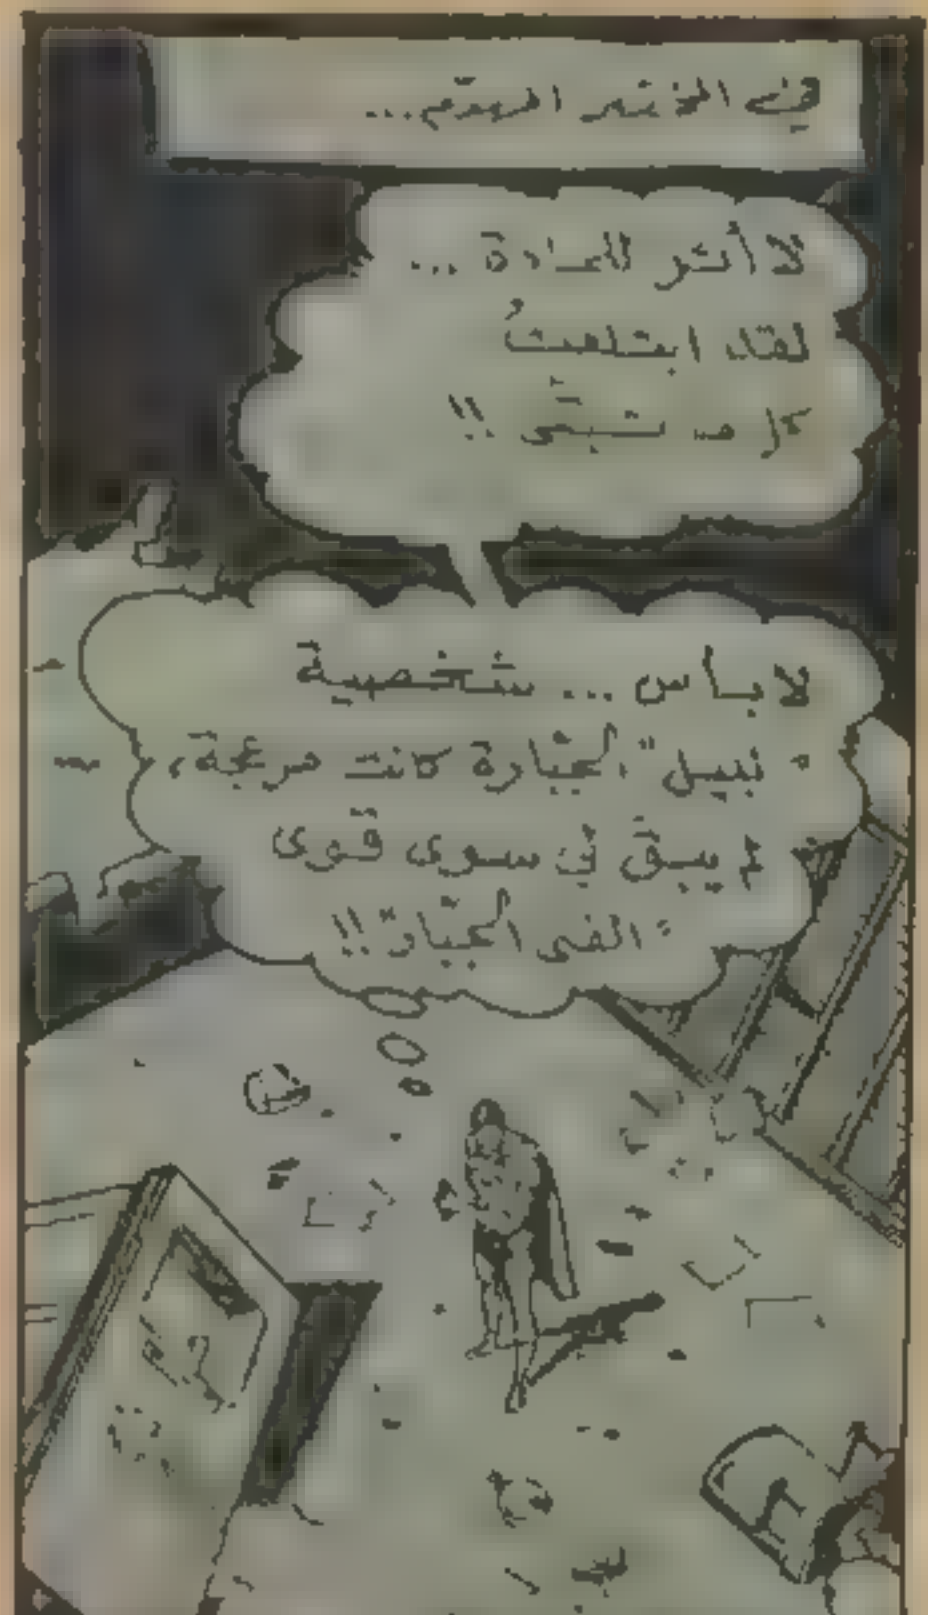 في المختبر المهدّم...
لا أثر للمادة ...
لقد ابتلعتُ
كل ما تبقّى !!
لا بأس ... شخصية
"نبيل" الجبّارة كانت مزعجة،
لم يبق لي سوى قوى
"الفتى الجبّار"!!